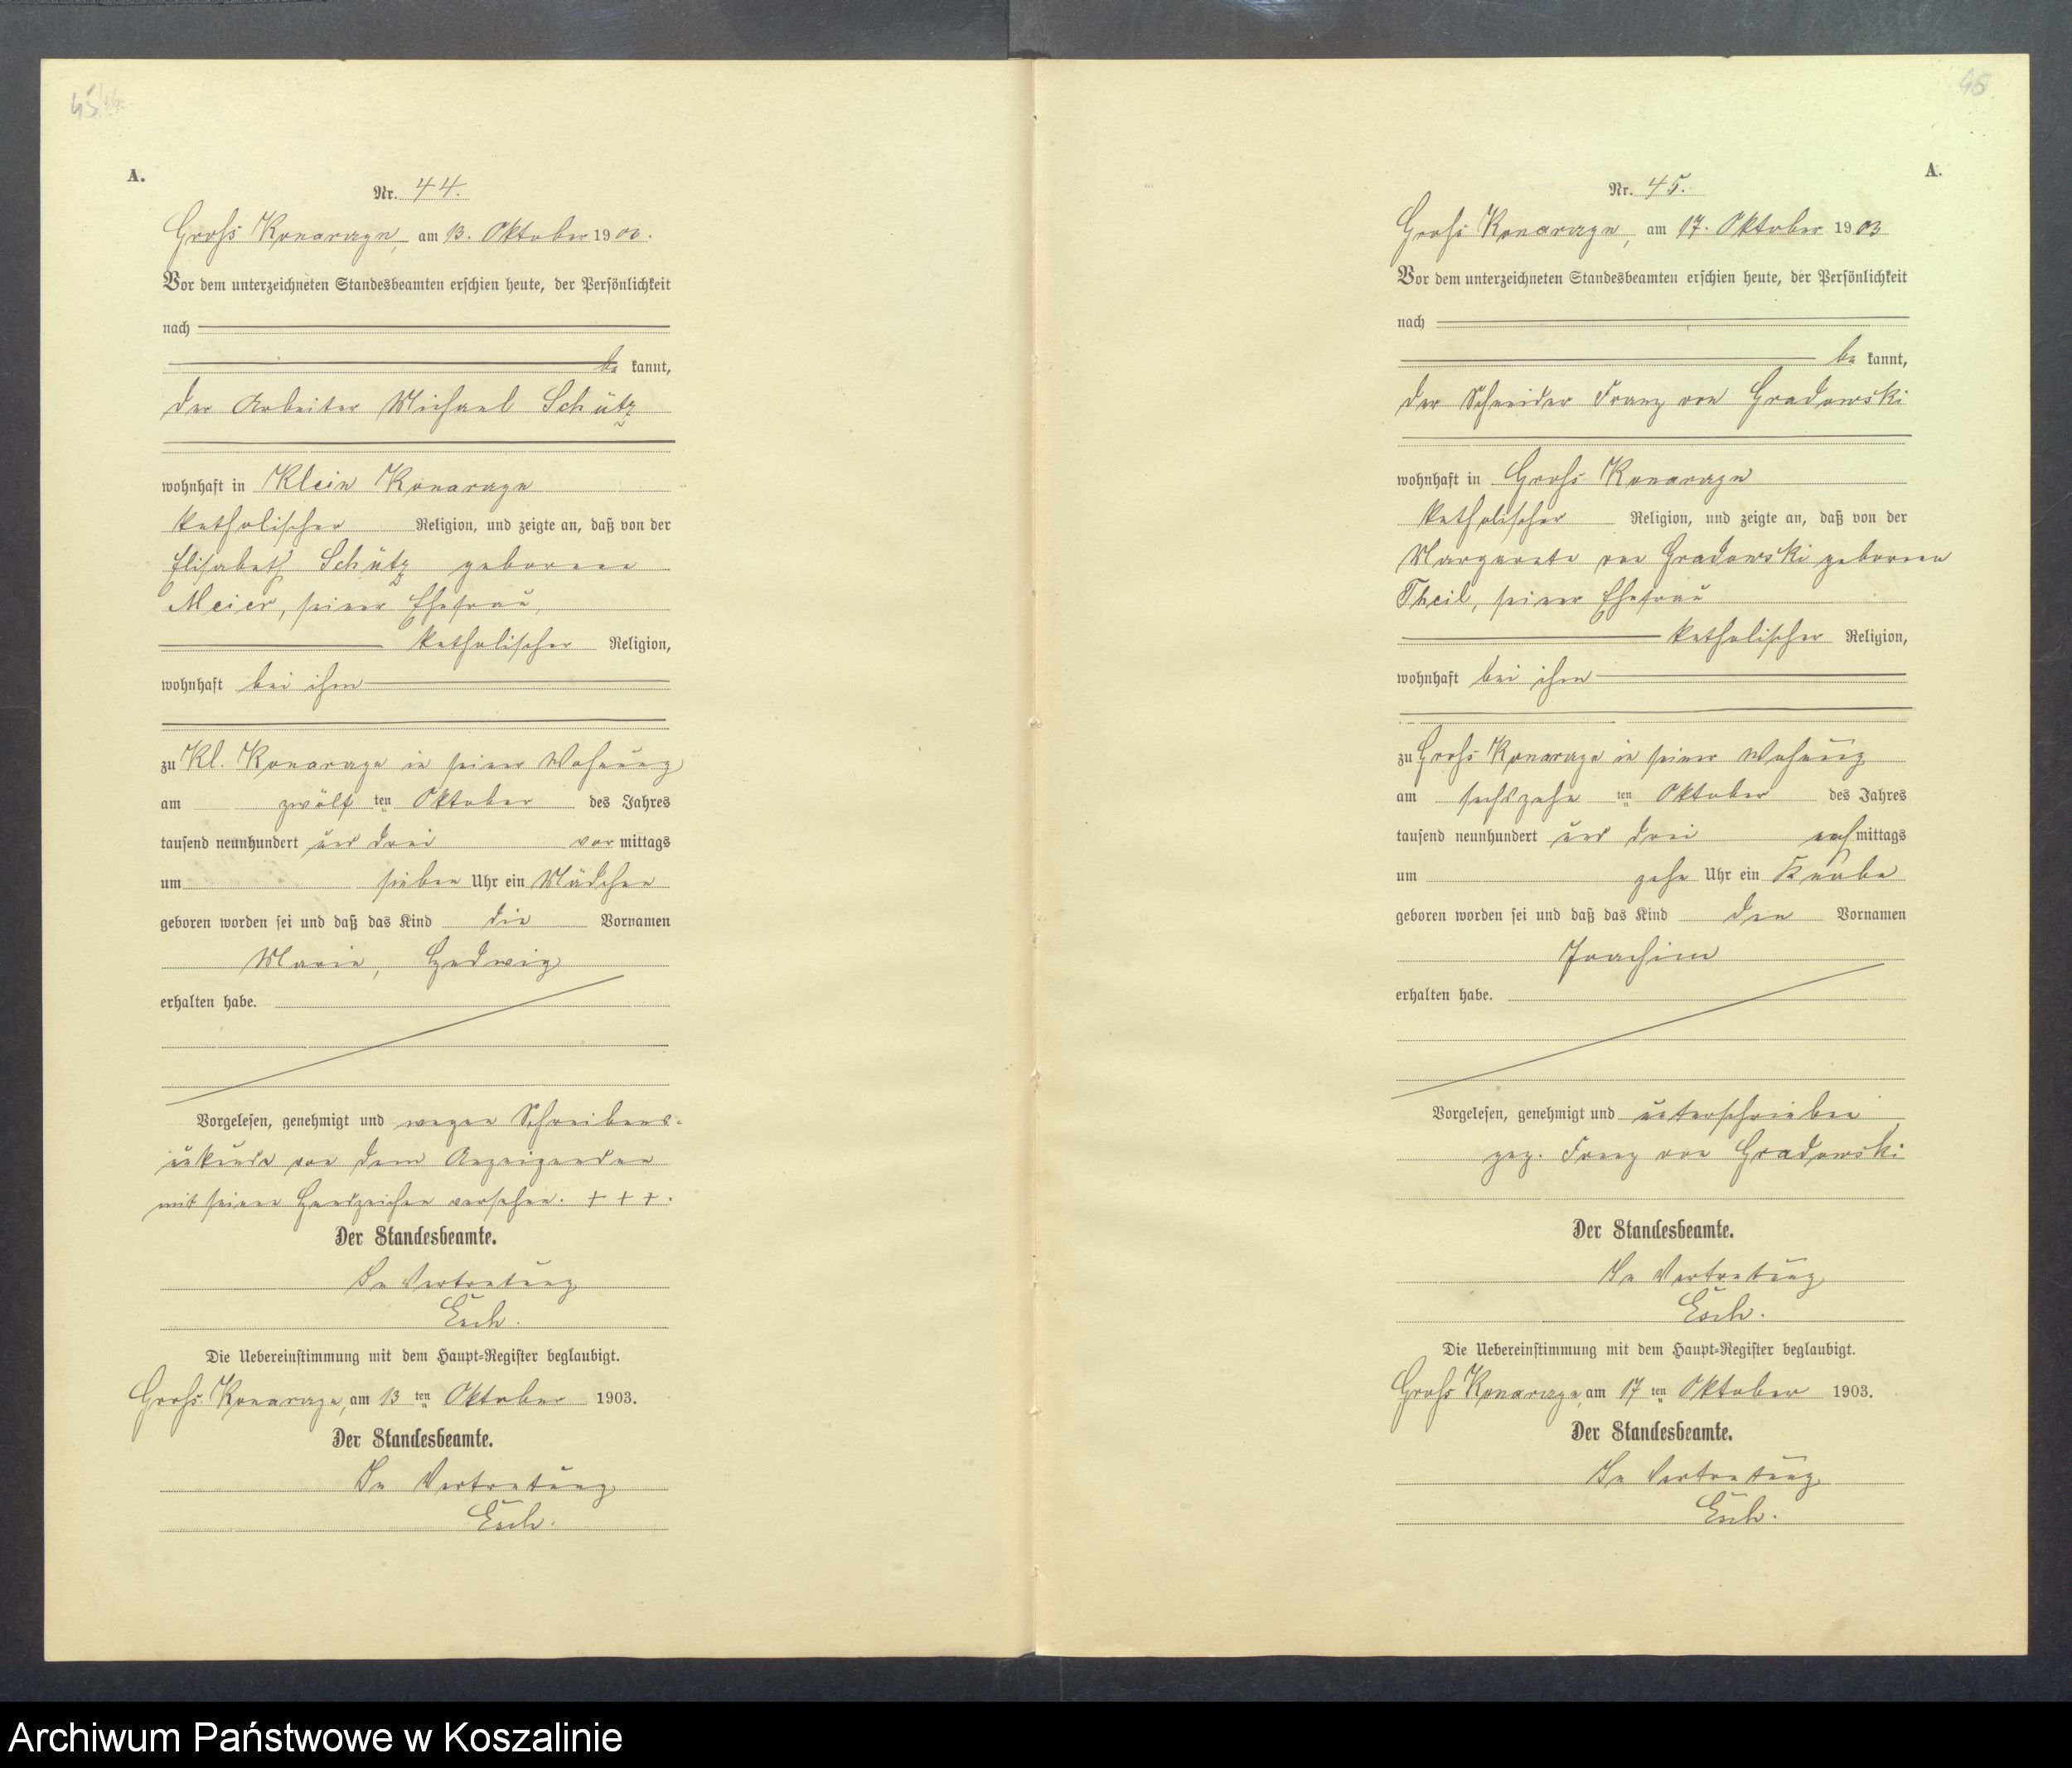 45
A.
Nr. 44.
Groß Konarzyn, am 13. Oktober 1903.
Vor dem unterzeichneten Standesbeamten erschien heute, der Persönlichkeit
nach
be kannt,
der Arbeiter Michael Schütz
wohnhaft in Klein Konarzyn
katholischer Religion, und zeigte an, daß von der
Elisabeth Schütz geborenen
Meier, seiner Ehefrau,
katholischer Religion,
wohnhaft bei ihm
zu Kl. Konarzyn in seiner Wohnung
am zwölf ten Oktober des Jahres
tausend neunhundert und drei vor mittags
um sieben Uhr ein Mädchen
geboren worden sei und daß das Kind die Vornamen
Marie, Hedwig
erhalten habe.
Vorgelesen, genehmigt und wegen Schreibens-
unkunde von dem Anzeigenden
mit seinem Handzeichen versehen. + + +.
Der Standesbeamte.
In Vertretung
Esch.
Die Uebereinstimmung mit dem Haupt-Register beglaubigt.
Groß Konarzyn, am 13 ten Oktober 1903.
Der Standesbeamte.
In Vertretung
Esch.
46
A.
Nr. 45.
Groß Konarzyn, am 17. Oktober 1903
Vor dem unterzeichneten Standesbeamten erschien heute, der Persönlichkeit
nach
be kannt,
der Schneider Franz von Gradowski
wohnhaft in Groß Konarzyn
katholischer Religion, und zeigte an, daß von der
Margarete von Gradowski geborenen
Theil, seiner Ehefrau
katholischer Religion,
wohnhaft bei ihm
zu Groß Konarzyn in seiner Wohnung
am sechszehn ten Oktober des Jahres
tausend neunhundert und drei nach mittags
um zehn Uhr ein Knabe
geboren worden sei und daß das Kind den Vornamen
Joachim
erhalten habe.
Vorgelesen, genehmigt und unterschrieben
gez. Franz von Gradowski
Der Standesbeamte.
In Vertretung
Esch.
Die Uebereinstimmung mit dem Haupt-Register beglaubigt.
Groß Konarzyn, am 17 ten Oktober 1903.
Der Standesbeamte.
In Vertretung
Esch.
Archiwum Państwowe w Koszalinie